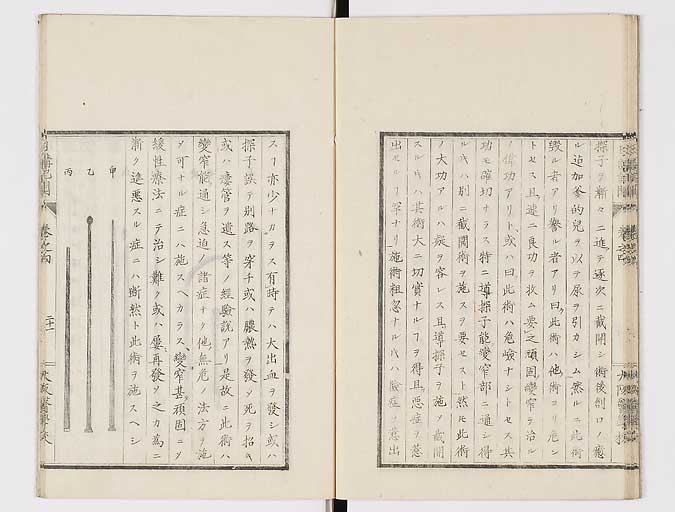 探子ヲ漸々ニ進テ逐次ニ截開シ術後創口ノ癒
ル迠加爹的兒ヲ以テ尿ヲ引カシム然ルニ此術
毀ル者アリ譽ル者アリ曰此術ハ他術ヨリ危シ
トセス且速ニ良功ヲ收ム要之頑固變窄ヲ治ル
ノ偉功アリト或ハ曰此術ハ危險ナシトセス其
功モ確切ナラス特ニ導探子能變窄部ニ通シ得
ルハ別ニ截開術ヲ施スヲ要セスト然モ此術
ノ大功アルハ疑ヲ容レス且導探子ヲ施ノ截開
スルハ其術大ニ切實ナルヿヲ得且惡症ヲ惹
出セルヿ罕ナリ施術粗忽ナルハ險症ヲ惹出
スヿ亦少ナカラス有時テハ大出血ヲ發シ或ハ
探子誤テ別路ヲ穿チ或ハ膿熱ヲ發メ死ヲ招キ
或ハ瘻管ヲ遺ス等ノ經驗說アリ是故ニ此術ハ
變窄能通シ急迫ノ諸症ナク他無危ノ法方ヲ施
メ可ナル症ニハ施スヘカラス變窄甚頑固ニメ
緩性療法ニテ治シ難ク或ハ屢再發メ之カ為ニ
漸ク進惡スル症ニハ断然ト此術ヲ施スヘシ
甲
乙
丙
卷之四
二十一